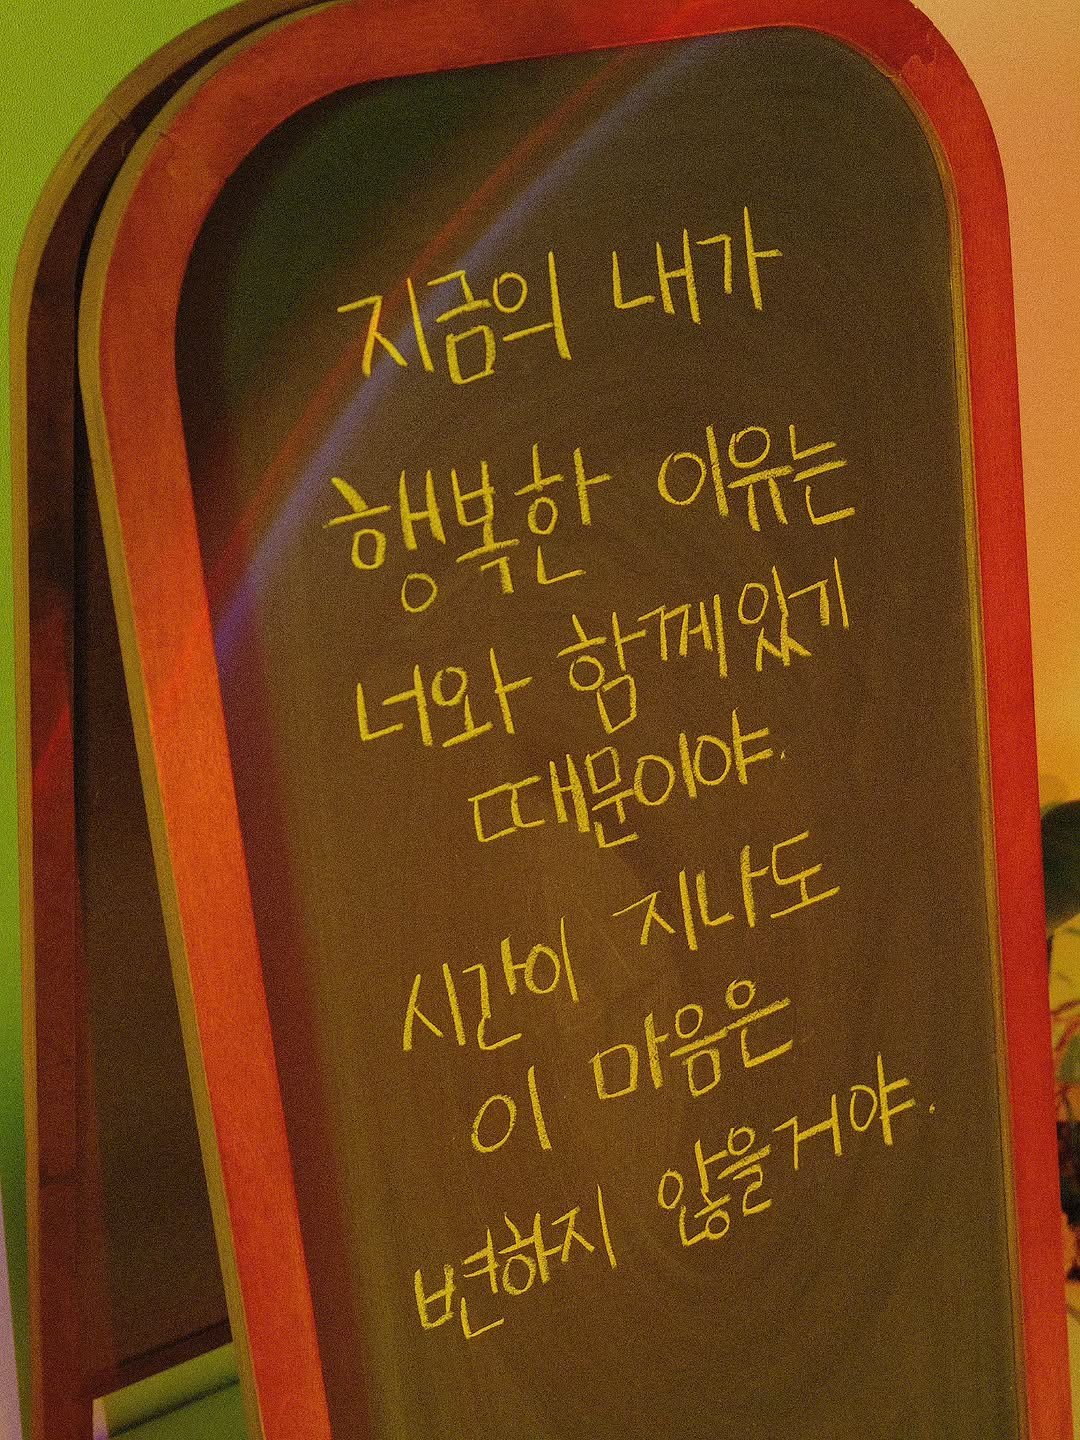 지금의 내가
행복한 이유는
너와 함께있기
때문이야.
시간이 지나도
이 마음은
변하지 않을거야.